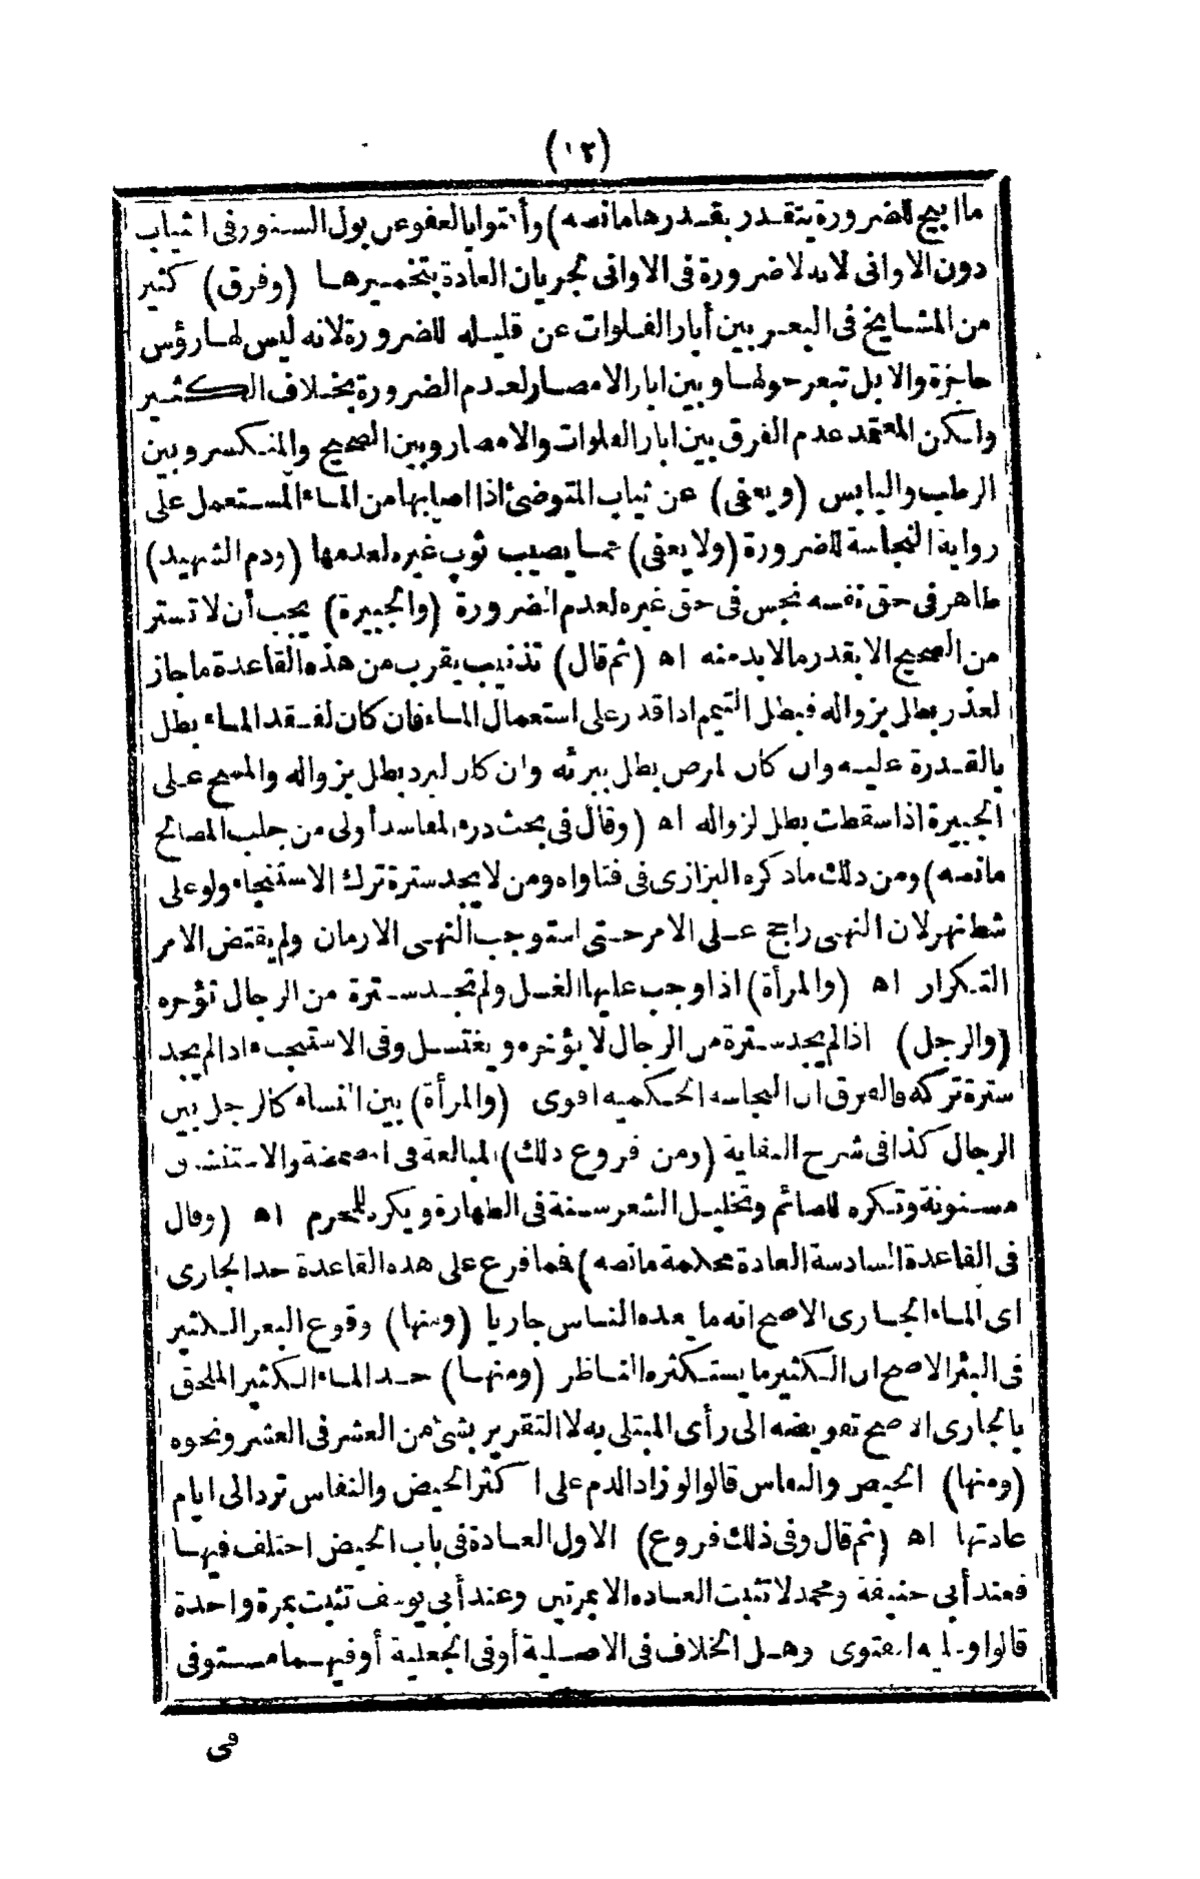 (١٢)
ما ابيح للضرورة يتقدر بقدرها مانصه) وأفتوا بالعفو عن بول السنور فى الثياب
دون الاوانى لانه لا ضرورة فى الاوانى لجريان العادة بتخميرها (وفرق) كثير
من المشايخ فى البعر بين أبار الفلوات عن قليله للضرورة لانه ليس لها رؤس
حاجزة والابل تبعر حولها وبين ابار الامصار لعدم الضرورة بخلاف الكثير
ولكن المعتمد عدم الفرق بين ابار الفلوات والامصار وبين الصحيح والمنكسر وبين
الرطب واليابس (ويعفى) عن ثياب المتوضئ اذا اصابها من الماء المستعمل على
رواية النجاسة للضرورة (ولا يعفى) عما يصيب ثوب غيره لعدمها (ودم الشهيد)
طاهر فى حق نفسه نجس فى حق غيره لعدم الضرورة (والجبيرة) يجب أن لا تستر
من الصحيح الا بقدر مالا بد منه اه (ثم قال) تذنيب يقرب من هذه القاعدة ما جاز
لعذر بطل بزواله فبطل التيمم اذا قدر على استعمال الماء فان كان لفقد الماء بطل
بالقدرة عليه وان كان لمرض بطل ببرئه وان كان لبرد بطل بزواله والمسح على
الجبيرة اذا سقطت بطل لزواله اه (وقال فى بحث درء المفاسد أولى من جلب المصالح
مانصه) ومن ذلك ماذكره البزازى فى فتاواه ومن لا يجد سترة ترك الاستنجاء ولو على
شط نهر لان النهى راجح على الامر حتى استوجب النهى الازمان ولم يقتض الامر
التكرار اه (والمرأة) اذا وجب عليها الغسل ولم تجد سترة من الرجال تؤخره
(والرجل) اذا لم يجد سترة من الرجال لا يؤخره ويغتسل وفى الاستنجاء اذا لم يجد
سترة تركه والفرق ان النجاسه الحكميه اقوى (والمرأة) بين النساء كالرجل بين
الرجال كذا فى شرح النقاية (ومن فروع ذلك) المبالغة فى المضمضة والاستنشاق
مسنونة وتكره للصائم وتخليل الشعر سنة فى الطهارة ويكره للمحرم اه (وقال
فى القاعدة السادسة العادة محكمة مانصه) فما فرع على هذه القاعدة حد الجارى
اى الماء الجارى الاصح انه ما يعده الناس جاريا (ومنها) وقوع البعر الكثير
فى البئر الاصح ان الكثير ما يستكثره الناظر (ومنها) حد الماء الكثير الملحق
بالجارى الاصح تفويضه الى رأى المبتلى به لا التقرير بشئ من العشر فى العشر ونحوه
(ومنها) الحيض والنفاس قالوا لو زاد الدم على اكثر الحيض والنفاس ترد الى ايام
عادتها اه (ثم قال وفى ذلك فروع) الاول العادة فى باب الحيض اختلف فيها
فعند أبى حنيفة ومحمد لا تثبت العاده الا بمرتين وعند أبى يوسف تثبت بمرة واحدة
قالوا وعليه الفتوى وهل الخلاف فى الاصلية أو فى الجعلية أو فيهما مستوفى
فى